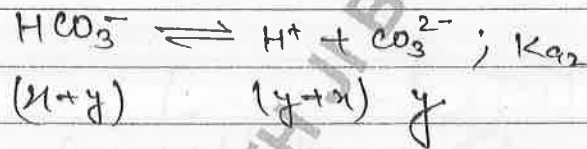 HCO₃⁻ ⇌ H⁺ + CO₃²⁻ ; Ka₂
(x+y) (y+x) y